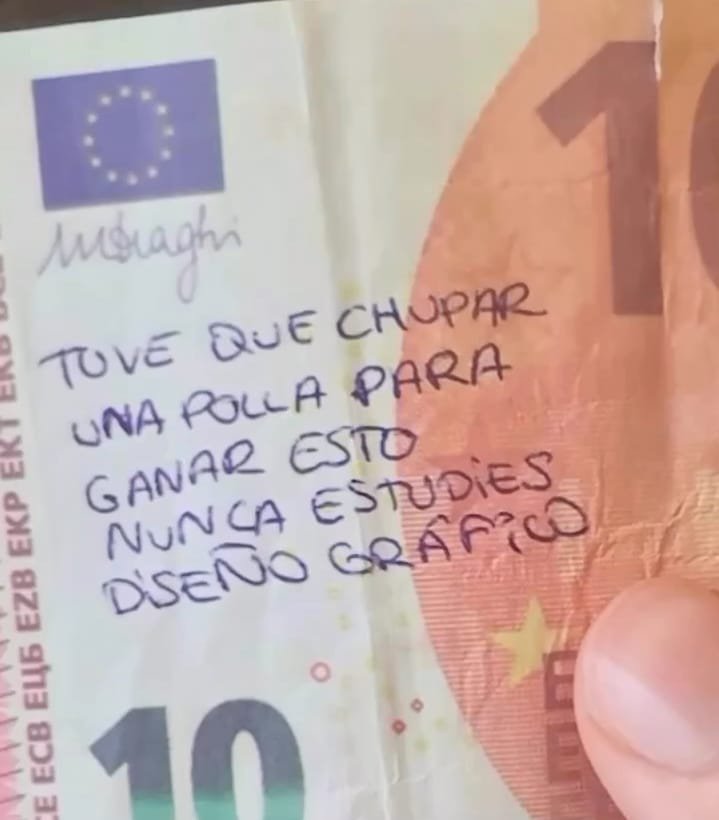 MDraghi
10
TUVE QUE CHUPAR
UNA POLLA PARA
GANAR ESTO
NUNCA ESTUDIES
DISEÑO GRÁFICO
10
ECB ЕЦБ EZB EKP EKT EKB